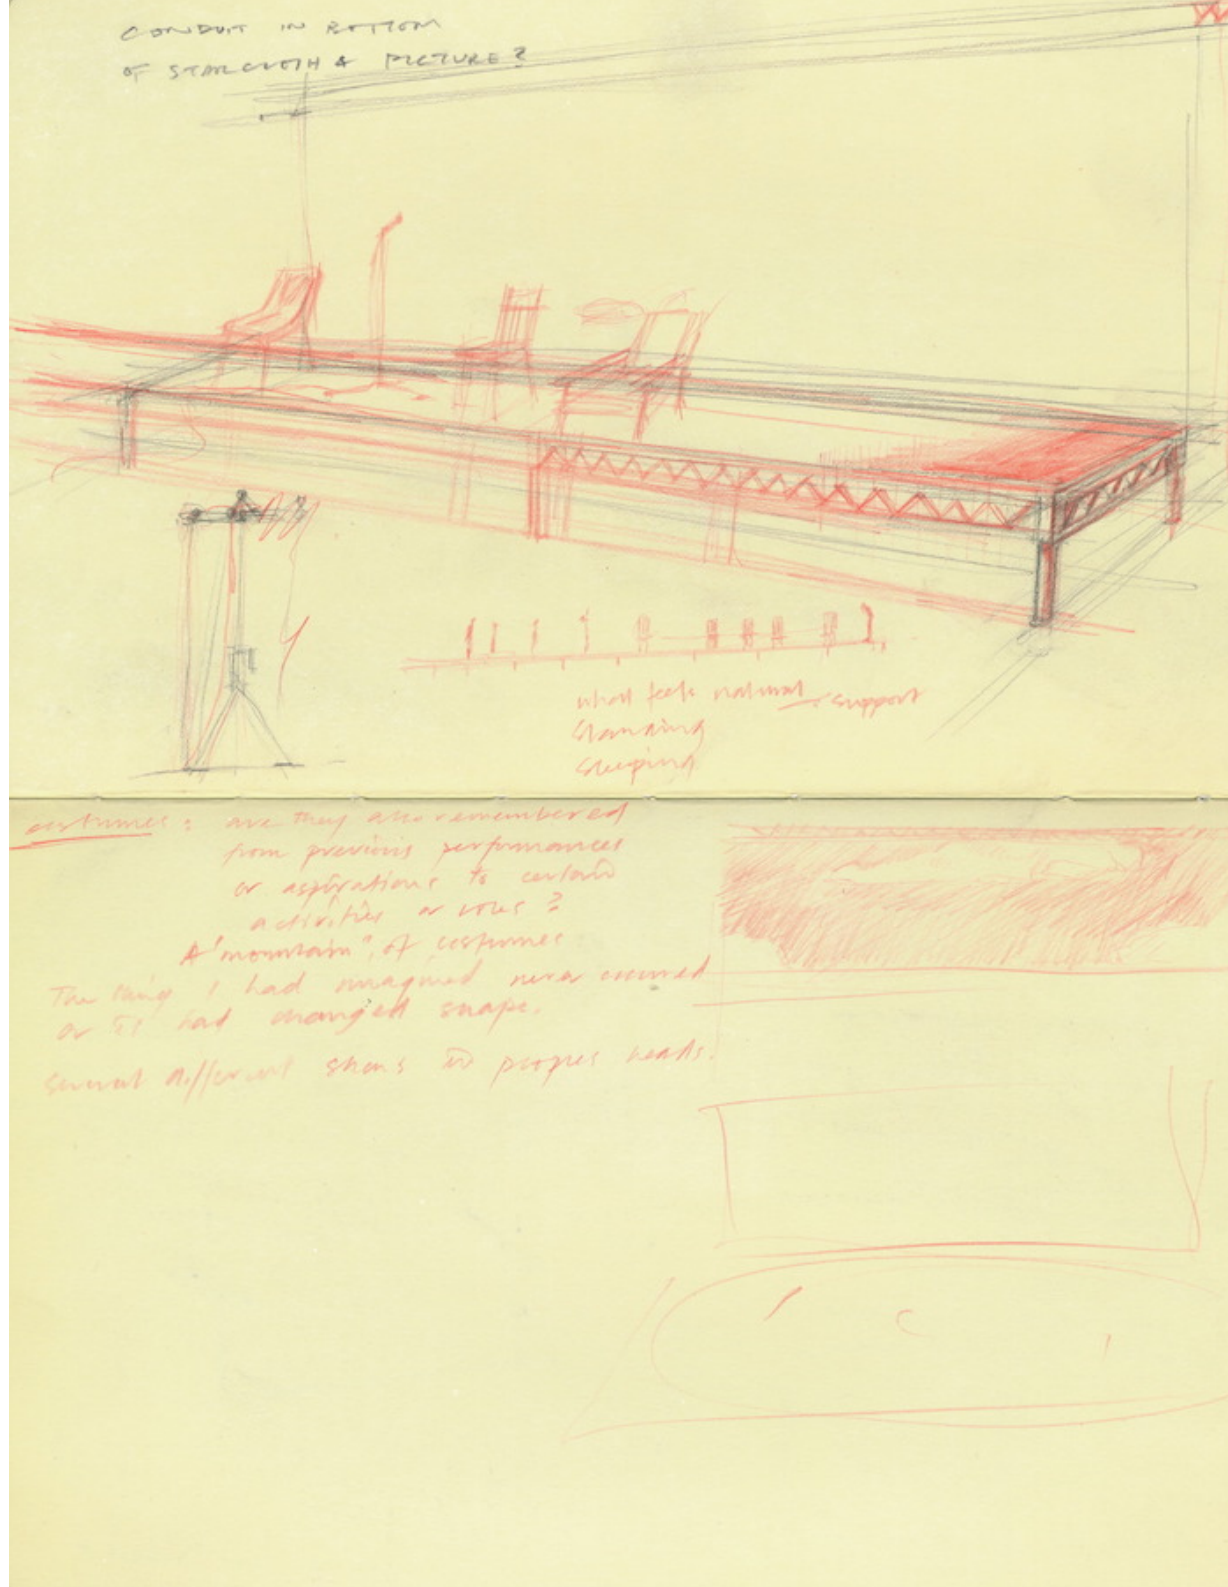 CONDUIT IN BOTTOM
OF STARCLOTH & PICTURE?
what feels natural support
standing
sleeping
costumes: are they also remembered
from previous performances
or aspirations to certain
activities or roles?
A "mountain" of costumes
The thing I had imagined never occurred
or it had changed shape.
several different shows in peoples heads.